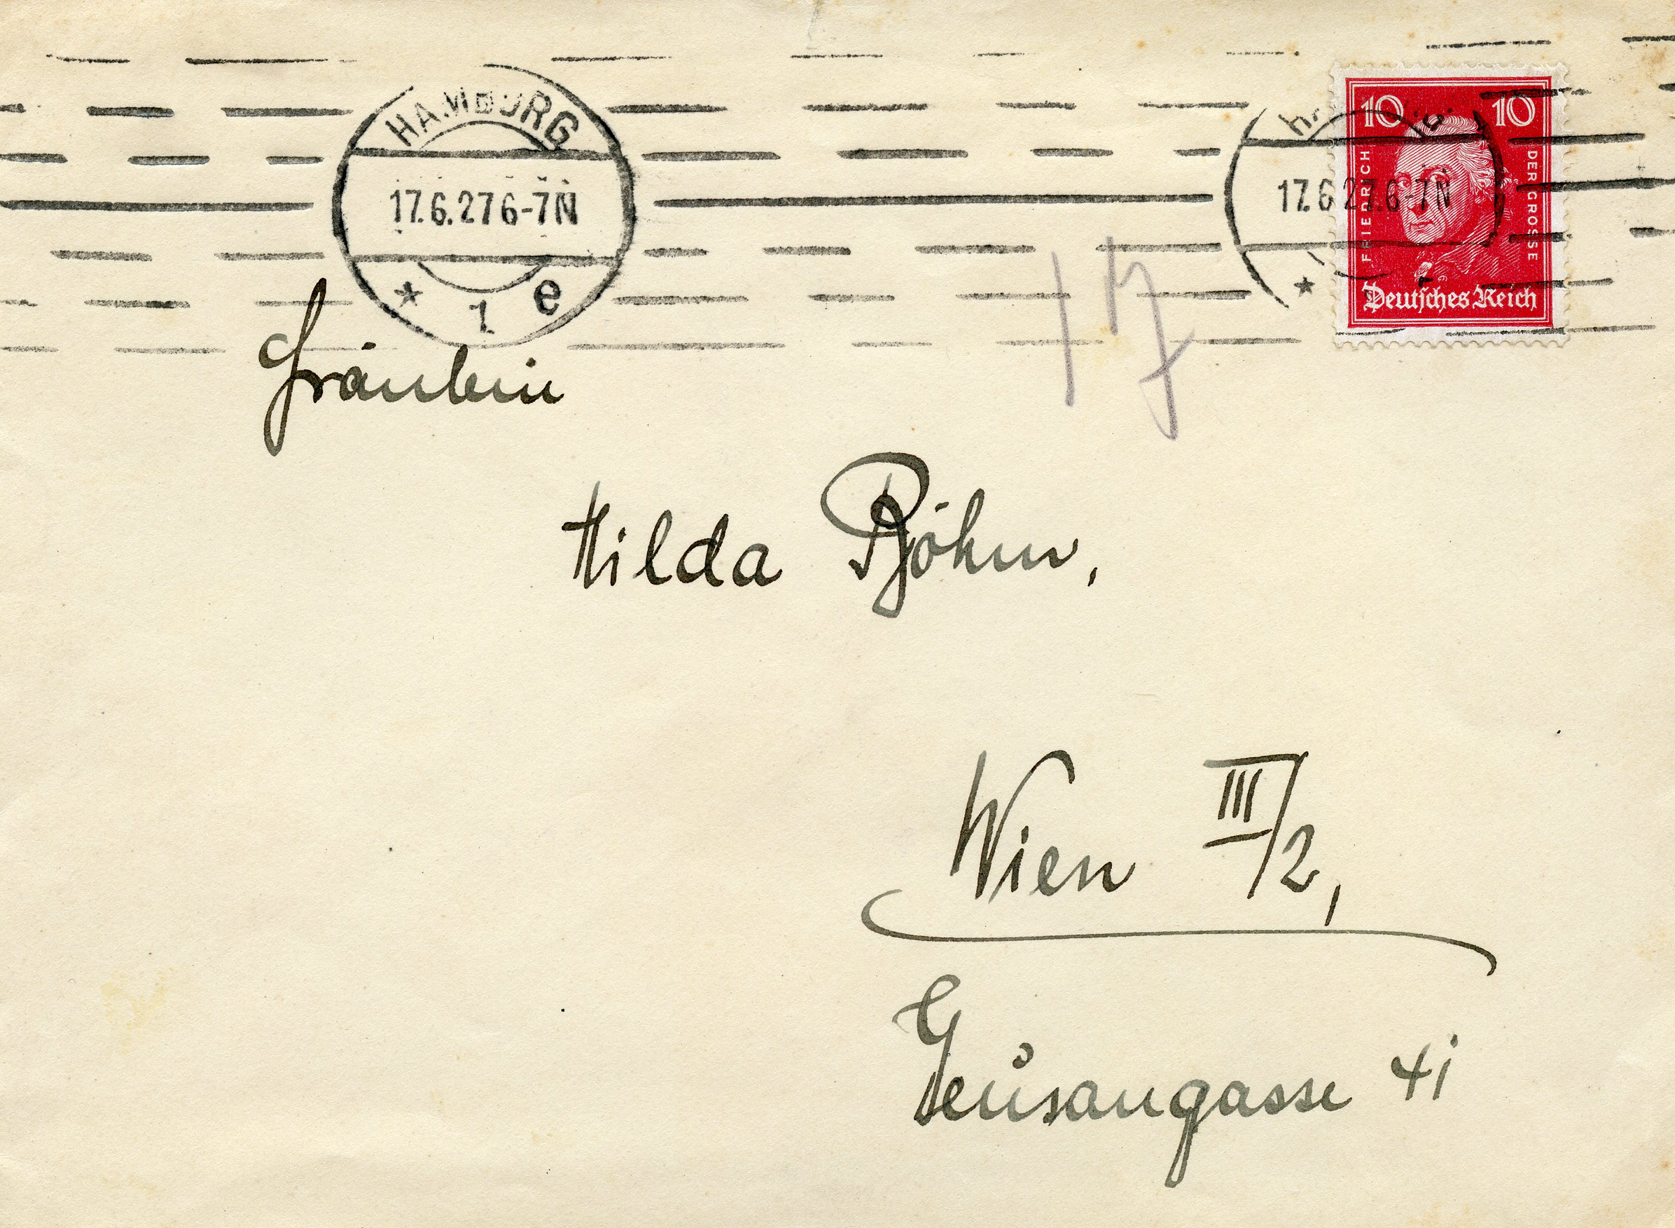 HAMBURG
17.6.27 6-7 N
* 1 e
10 10
FRIEDRICH DER GROSSE
Deutsches Reich
17.6.27.6-7N
*
17
Fräulein
Hilda Böhm,
Wien III/2,
Geusaugasse 41